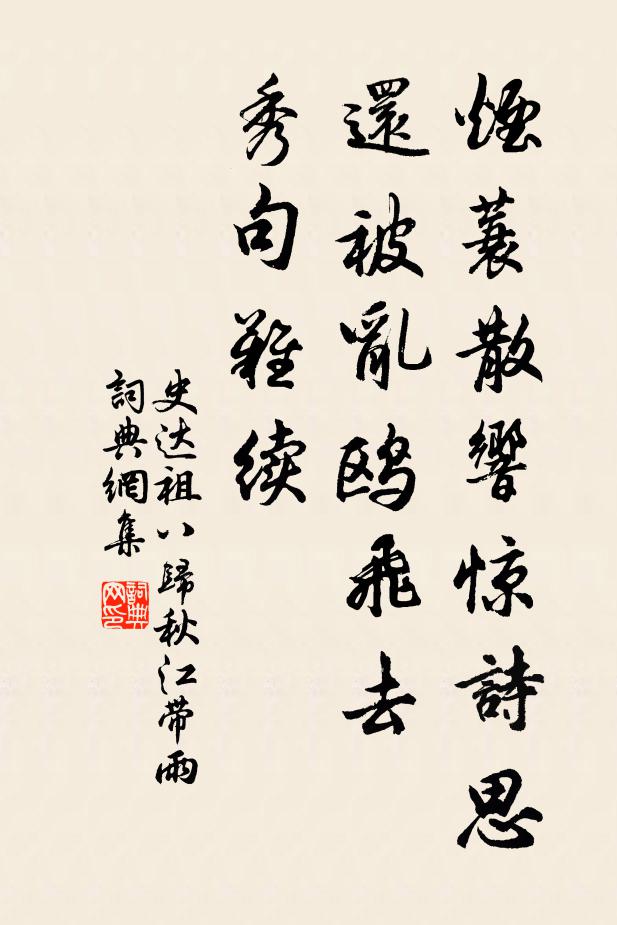 煙蓑散響惊詩思
還被亂鸥飛去
秀句難续
史达祖八歸秋江带雨
詞典網集
詞典
网印